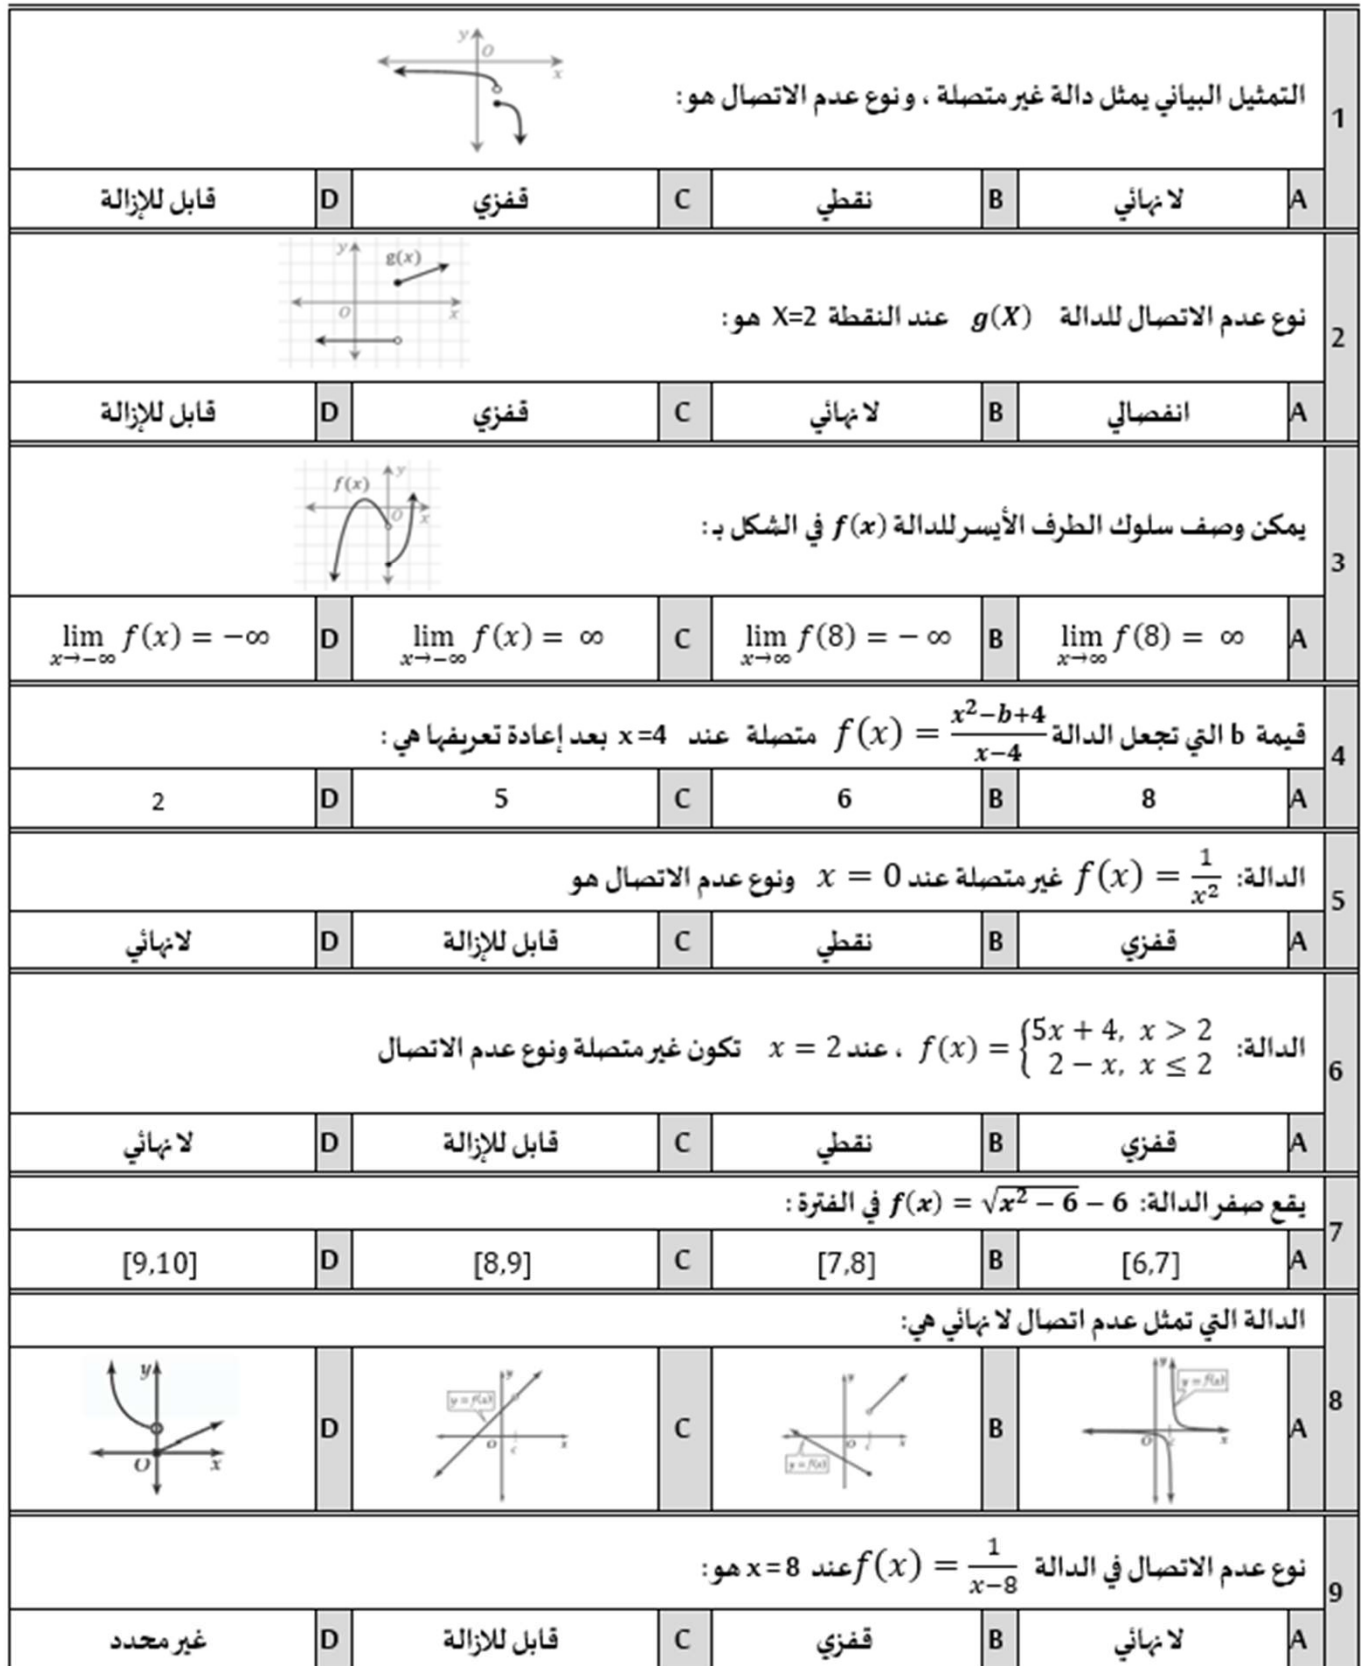 1
التمثيل البياني يمثل دالة غير متصلة ، ونوع عدم الاتصال هو:
y O x
A لا نهائي B نقطي C قفزي D قابل للإزالة
2
نوع عدم الاتصال للدالة g(X) عند النقطة X=2 هو:
y g(x) O x
A انفصالي B لا نهائي C قفزي D قابل للإزالة
3
يمكن وصف سلوك الطرف الأيسر للدالة f(x) في الشكل بـ:
f(x) y O x
A lim x→∞ f(8) = ∞ B lim x→∞ f(8) = − ∞ C lim x→−∞ f(x) = ∞ D lim x→−∞ f(x) = −∞
4
قيمة b التي تجعل الدالة f(x) = (x²−b+4)/(x−4) متصلة عند x=4 بعد إعادة تعريفها هي:
A 8 B 6 C 5 D 2
5
الدالة: f(x) = 1/x² غير متصلة عند x = 0 ونوع عدم الاتصال هو
A قفزي B نقطي C قابل للإزالة D لانهائي
6
الدالة: f(x) = {5x + 4, x > 2
2 − x, x ≤ 2 ، عند x = 2 تكون غير متصلة ونوع عدم الاتصال
A قفزي B نقطي C قابل للإزالة D لا نهائي
7
يقع صفر الدالة: f(x) = √(x² − 6) − 6 في الفترة :
A [6,7] B [7,8] C [8,9] D [9,10]
8
الدالة التي تمثل عدم اتصال لا نهائي هي:
A y y = f(x) O c x
B y O c x y = f(x)
C y y = f(x) O c x
D y O x
9
نوع عدم الاتصال في الدالة f(x) = 1/(x−8) عند x=8 هو:
A لا نهائي B قفزي C قابل للازالة D غير محدد